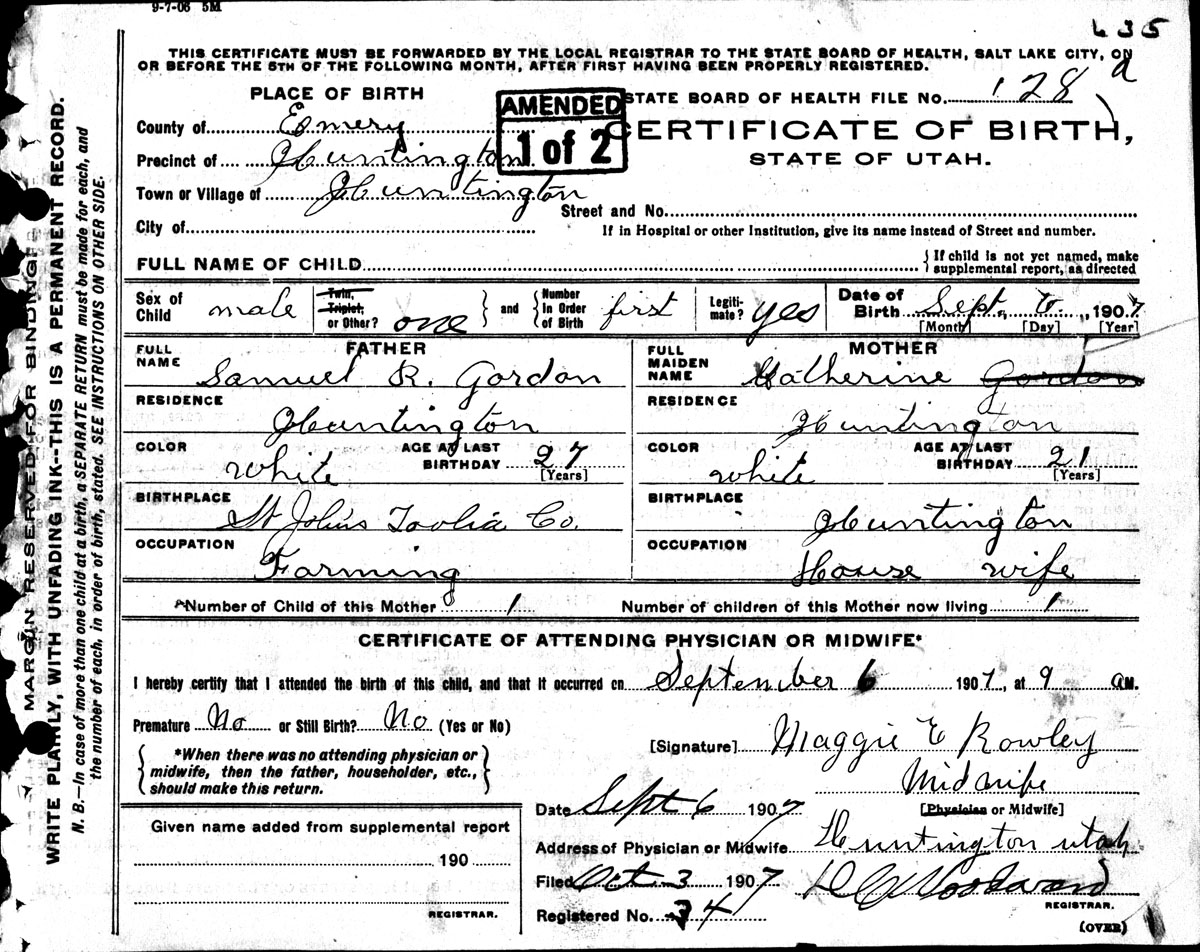 9-7-06 5M
635
THIS CERTIFICATE MUST BE FORWARDED BY THE LOCAL REGISTRAR TO THE STATE BOARD OF HEALTH, SALT LAKE CITY, ON
OR BEFORE THE 5TH OF THE FOLLOWING MONTH, AFTER FIRST HAVING BEEN PROPERLY REGISTERED.
PLACE OF BIRTH
AMENDED
1 of 2
STATE BOARD OF HEALTH FILE No. 128
County of Emery
CERTIFICATE OF BIRTH,
Precinct of Huntington
STATE OF UTAH.
Town or Village of Huntington
Street and No.
City of
If in Hospital or other Institution, give its name instead of Street and number.
FULL NAME OF CHILD
{If child is not yet named, make
supplemental report, as directed
Sex of Child male Twin, Triplet, or Other? one } and { Number in Order of Birth first Legiti-mate? yes Date of Birth Sept. 6 , 1907
[Month] [Day] [Year]
FATHER MOTHER
FULL NAME Samuel R. Gordon FULL MAIDEN NAME Katherine Gordon
RESIDENCE RESIDENCE
Huntington Huntington
COLOR white AGE AT LAST BIRTHDAY 27 [Years] COLOR white AGE AT LAST BIRTHDAY 21 [Years]
BIRTHPLACE BIRTHPLACE
St Johns Toolia Co. Huntington
OCCUPATION OCCUPATION
Farming House wife
Number of Child of this Mother 1 Number of children of this Mother now living 1
CERTIFICATE OF ATTENDING PHYSICIAN OR MIDWIFE*
I hereby certify that I attended the birth of this child, and that it occurred on September 6 1907, at 9 a M.
Premature No or Still Birth? No (Yes or No)
{*When there was no attending physician or
midwife, then the father, householder, etc.,
should make this return.}
[Signature] Maggie E Rowley
Midwife
[Physician or Midwife]
Date Sept 6 1907
Address of Physician or Midwife Huntington utah
Filed Oct 3 1907
Registered No. 34
REGISTRAR.
(OVER)
Given name added from supplemental report
190
REGISTRAR.
MARGIN RESERVED FOR BINDING
WRITE PLAINLY, WITH UNFADING INK--THIS IS A PERMANENT RECORD.
N. B.—In case of more than one child at a birth, a SEPARATE RETURN must be made for each, and
the number of each, in order of birth, stated. SEE INSTRUCTIONS ON OTHER SIDE.